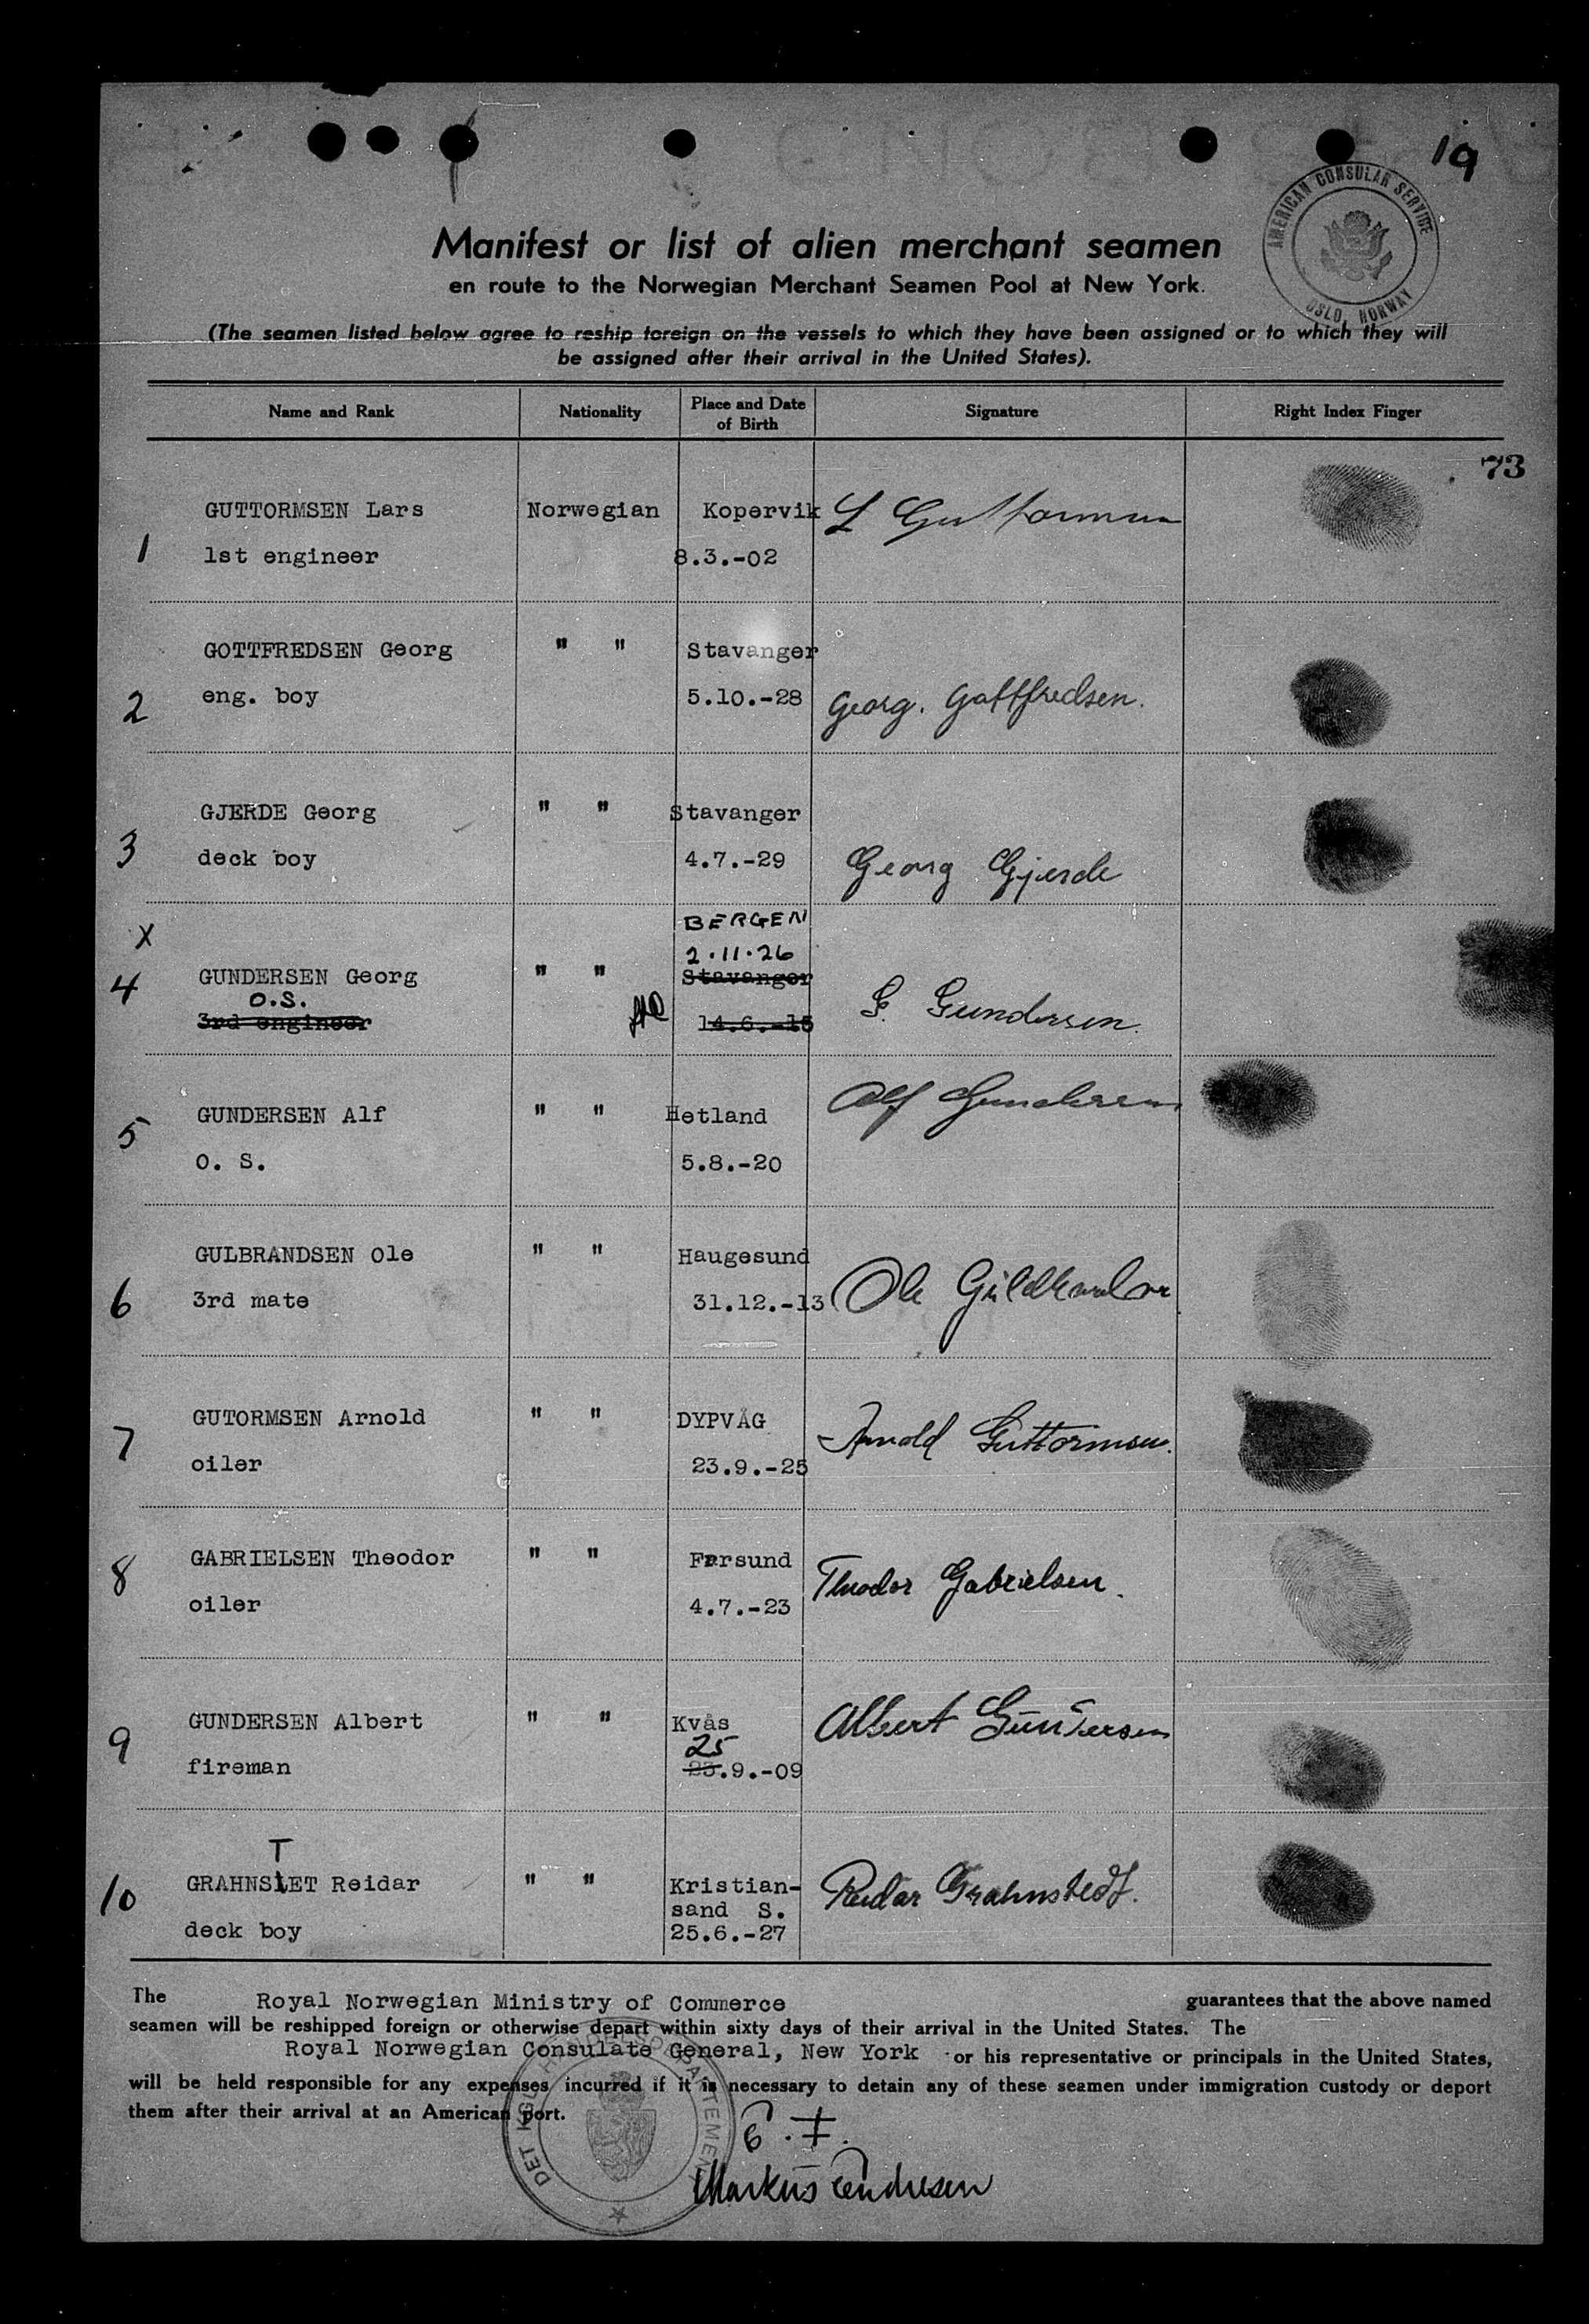 19
AMERICAN CONSULAR SERVICE
OSLO, NORWAY
Manifest or list of alien merchant seamen
en route to the Norwegian Merchant Seamen Pool at New York.
(The seamen listed below agree to reship foreign on the vessels to which they have been assigned or to which they will
be assigned after their arrival in the United States).
Name and Rank Nationality Place and Date of Birth Signature Right Index Finger
73
1 GUTTORMSEN Lars Norwegian Kopervik L Guttormsen
1st engineer 8.3.-02
GOTTFREDSEN Georg " " Stavanger
2 eng. boy 5.10.-28 Georg. Gottfredsen.
GJERDE Georg " " Stavanger
3 deck boy 4.7.-29 Georg Gjerde
X BERGEN
2.11.26
4 GUNDERSEN Georg " " Stavanger
O.S.
3rd engineer 14.6.-15 G. Gundersen.
GUNDERSEN Alf " " Hetland Alf Gundersen
5 O. S. 5.8.-20
GULBRANDSEN Ole " " Haugesund
6 3rd mate 31.12.-13 Ole
GUTORMSEN Arnold " " DYPVÅG Arnold Guttormsen.
7 oiler 23.9.-25
GABRIELSEN Theodor " " Farsund Theodor Gabrielsen.
8 oiler 4.7.-23
GUNDERSEN Albert " " Kvås Albert Gundersen
9 25
fireman 23.9.-09
T
10 GRAHNSTET Reidar " " Kristian-
sand S. Reidar Grahnstedt.
deck boy 25.6.-27
The Royal Norwegian Ministry of Commerce guarantees that the above named
seamen will be reshipped foreign or otherwise depart within sixty days of their arrival in the United States. The
Royal Norwegian Consulate General, New York or his representative or principals in the United States,
will be held responsible for any expenses incurred if it is necessary to detain any of these seamen under immigration custody or deport
them after their arrival at an American port.
Markus Endresen